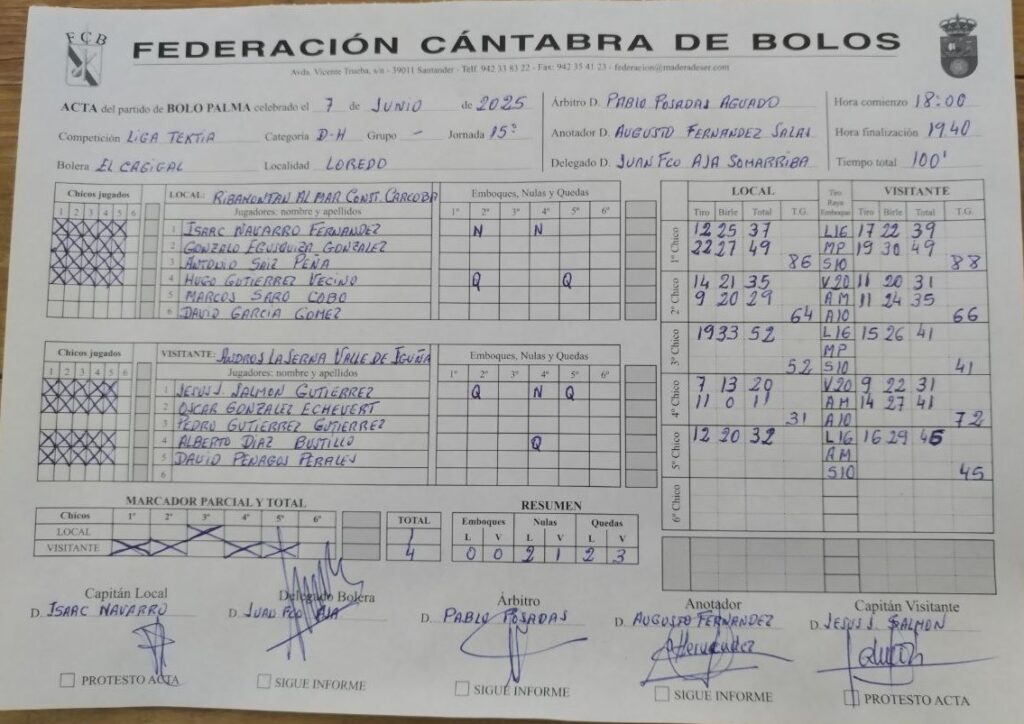 FCB
FEDERACIÓN CÁNTABRA DE BOLOS
Avda. Vicente Trueba, s/n - 39011 Santander - Telf. 942 33 83 22 - Fax: 942 35 41 23 - federacion@maderadeser.com
ACTA del partido de BOLO PALMA celebrado el 7 de JUNIO de 2025
Competición LIGA TEKTIA Categoría D-H Grupo - Jornada 15ª
Bolera EL CAGIGAL Localidad LOREDO
Árbitro D. PABLO POSADAS AGUADO
Anotador D. AUGUSTO FERNANDEZ SALAS
Delegado D. JUAN FCO AJA SOMARRIBA
Hora comienzo 18:00
Hora finalización 19.40
Tiempo total 100'
Chicos jugados LOCAL: RIBAMONTAN AL MAR CONST. CARCOBA Emboques, Nulas y Quedas
1 2 3 4 5 6 Jugadores: nombre y apellidos 1º 2º 3º 4º 5º 6º
1 ISAAC NAVARRO FERNANDEZ N N
2 GONZALO EGUSQUIZA GONZALEZ
3 ANTONIO SAIZ PEÑA
4 HUGO GUTIERREZ VECINO Q Q
5 MARCOS SARO COBO
6 DAVID GARCIA GOMEZ
Chicos jugados VISITANTE: ANDROS LA SERNA VALLE DE IGUÑA Emboques, Nulas y Quedas
1 2 3 4 5 6 Jugadores: nombre y apellidos 1º 2º 3º 4º 5º 6º
1 JESUS SALMON GUTIERREZ Q N Q
2 OSCAR GONZALEZ ECHEVERT
3 PEDRO GUTIERREZ GUTIERREZ
4 ALBERTO DIAZ BUSTILLO Q
5 DAVID PENAGOS PERALES
6
LOCAL Tiro Raya Emboque VISITANTE
Tiro Birle Total T.G. Tiro Birle Total T.G.
1º Chico 12 25 37 L16 17 22 39
22 27 49 MP 19 30 49
86 S10 88
2º Chico 14 21 35 V20 11 20 31
9 20 29 AM 11 24 35
64 A10 66
3º Chico 19 33 52 L16 15 26 41
MP
52 S10 41
4º Chico 7 13 20 V20 9 22 31
11 0 11 AM 14 27 41
31 A10 72
5º Chico 12 20 32 L16 16 29 45
AM
S10 45
6º Chico
MARCADOR PARCIAL Y TOTAL
Chicos 1º 2º 3º 4º 5º 6º TOTAL
LOCAL 1
VISITANTE 4
RESUMEN
Emboques Nulas Quedas
L V L V L V
0 0 2 1 2 3
Capitán Local Delegado Bolera Árbitro Anotador Capitán Visitante
D. ISAAC NAVARRO D. JUAN FCO AJA D. PABLO POSADAS D. AUGUSTO FERNANDEZ D. JESUS J. SALMON
AFernandez
PROTESTO ACTA SIGUE INFORME SIGUE INFORME SIGUE INFORME PROTESTO ACTA